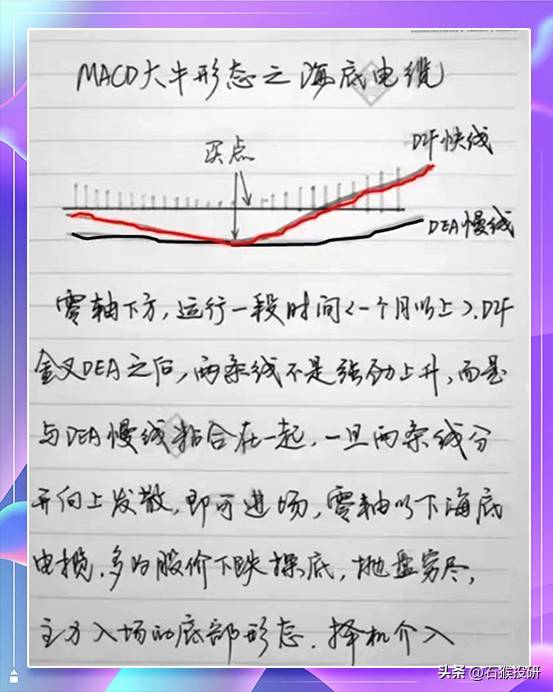 MACD大牛形态之海底电缆
买点
DIF快线
DEA慢线
零轴下方,运行一段时间<一个月以上>.DIF
金叉DEA之后,两条线不是强劲上升,而是
与DEA慢线粘合在一起,一旦两条线分
开向上发散,即可进场,零轴以下海底
电揽.多为股价下跌探底,抛盘穷尽,
主力入场的底部形态.择机介入
头条 @石猴投研